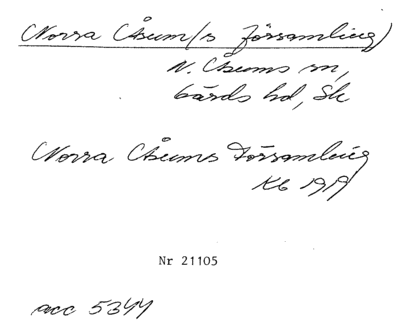 Norra Åsum/s församling)
N. Åsums sn,
Gärds hd, Sk
Norra Åsums Församling
Kb 1919
Nr 21105
acc 5344